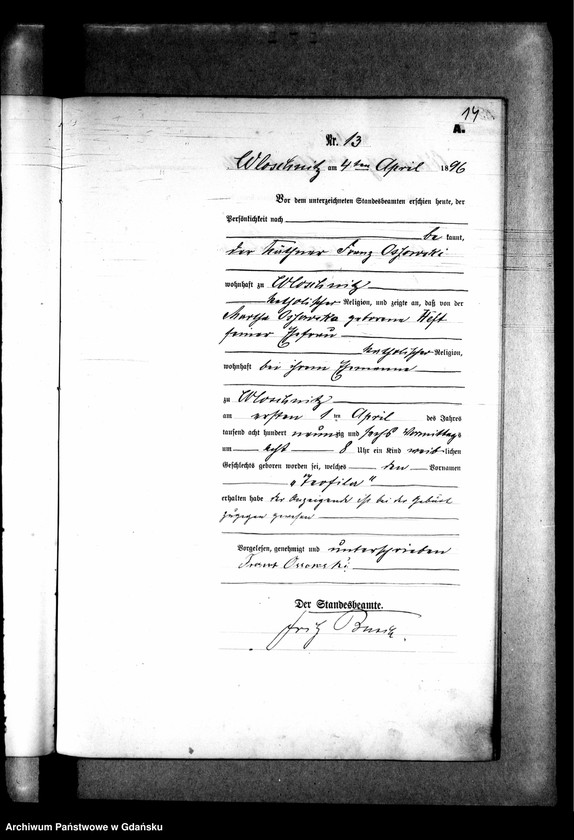 14
A.
Nr. 13
Wloschnitz am 4ten April 1896
Vor dem unterzeichneten Standesbeamten erschien heute, der
Persönlichkeit nach
be kannt,
der Käthner Franz Ossowski
wohnhaft zu Wloschnitz
katholischer Religion, und zeigte an, daß von der
Martha Ossowska geborene
seiner Ehefrau
katholischer Religion,
wohnhaft bei ihrem Ehemanne
zu Wloschnitz
am ersten 1 ten April des Jahres
tausend acht hundert neunzig und sechs Vormittags
um acht 8 Uhr ein Kind weiblichen
Geschlechts geboren worden sei, welches den Vornamen
„Teofila"
erhalten habe der Anzeigende ist bei der Geburt
zugegen gewesen
Vorgelesen, genehmigt und unterschrieben
Franz Ossowski
Der Standesbeamte.
Fritz
Archiwum Państwowe w Gdańsku